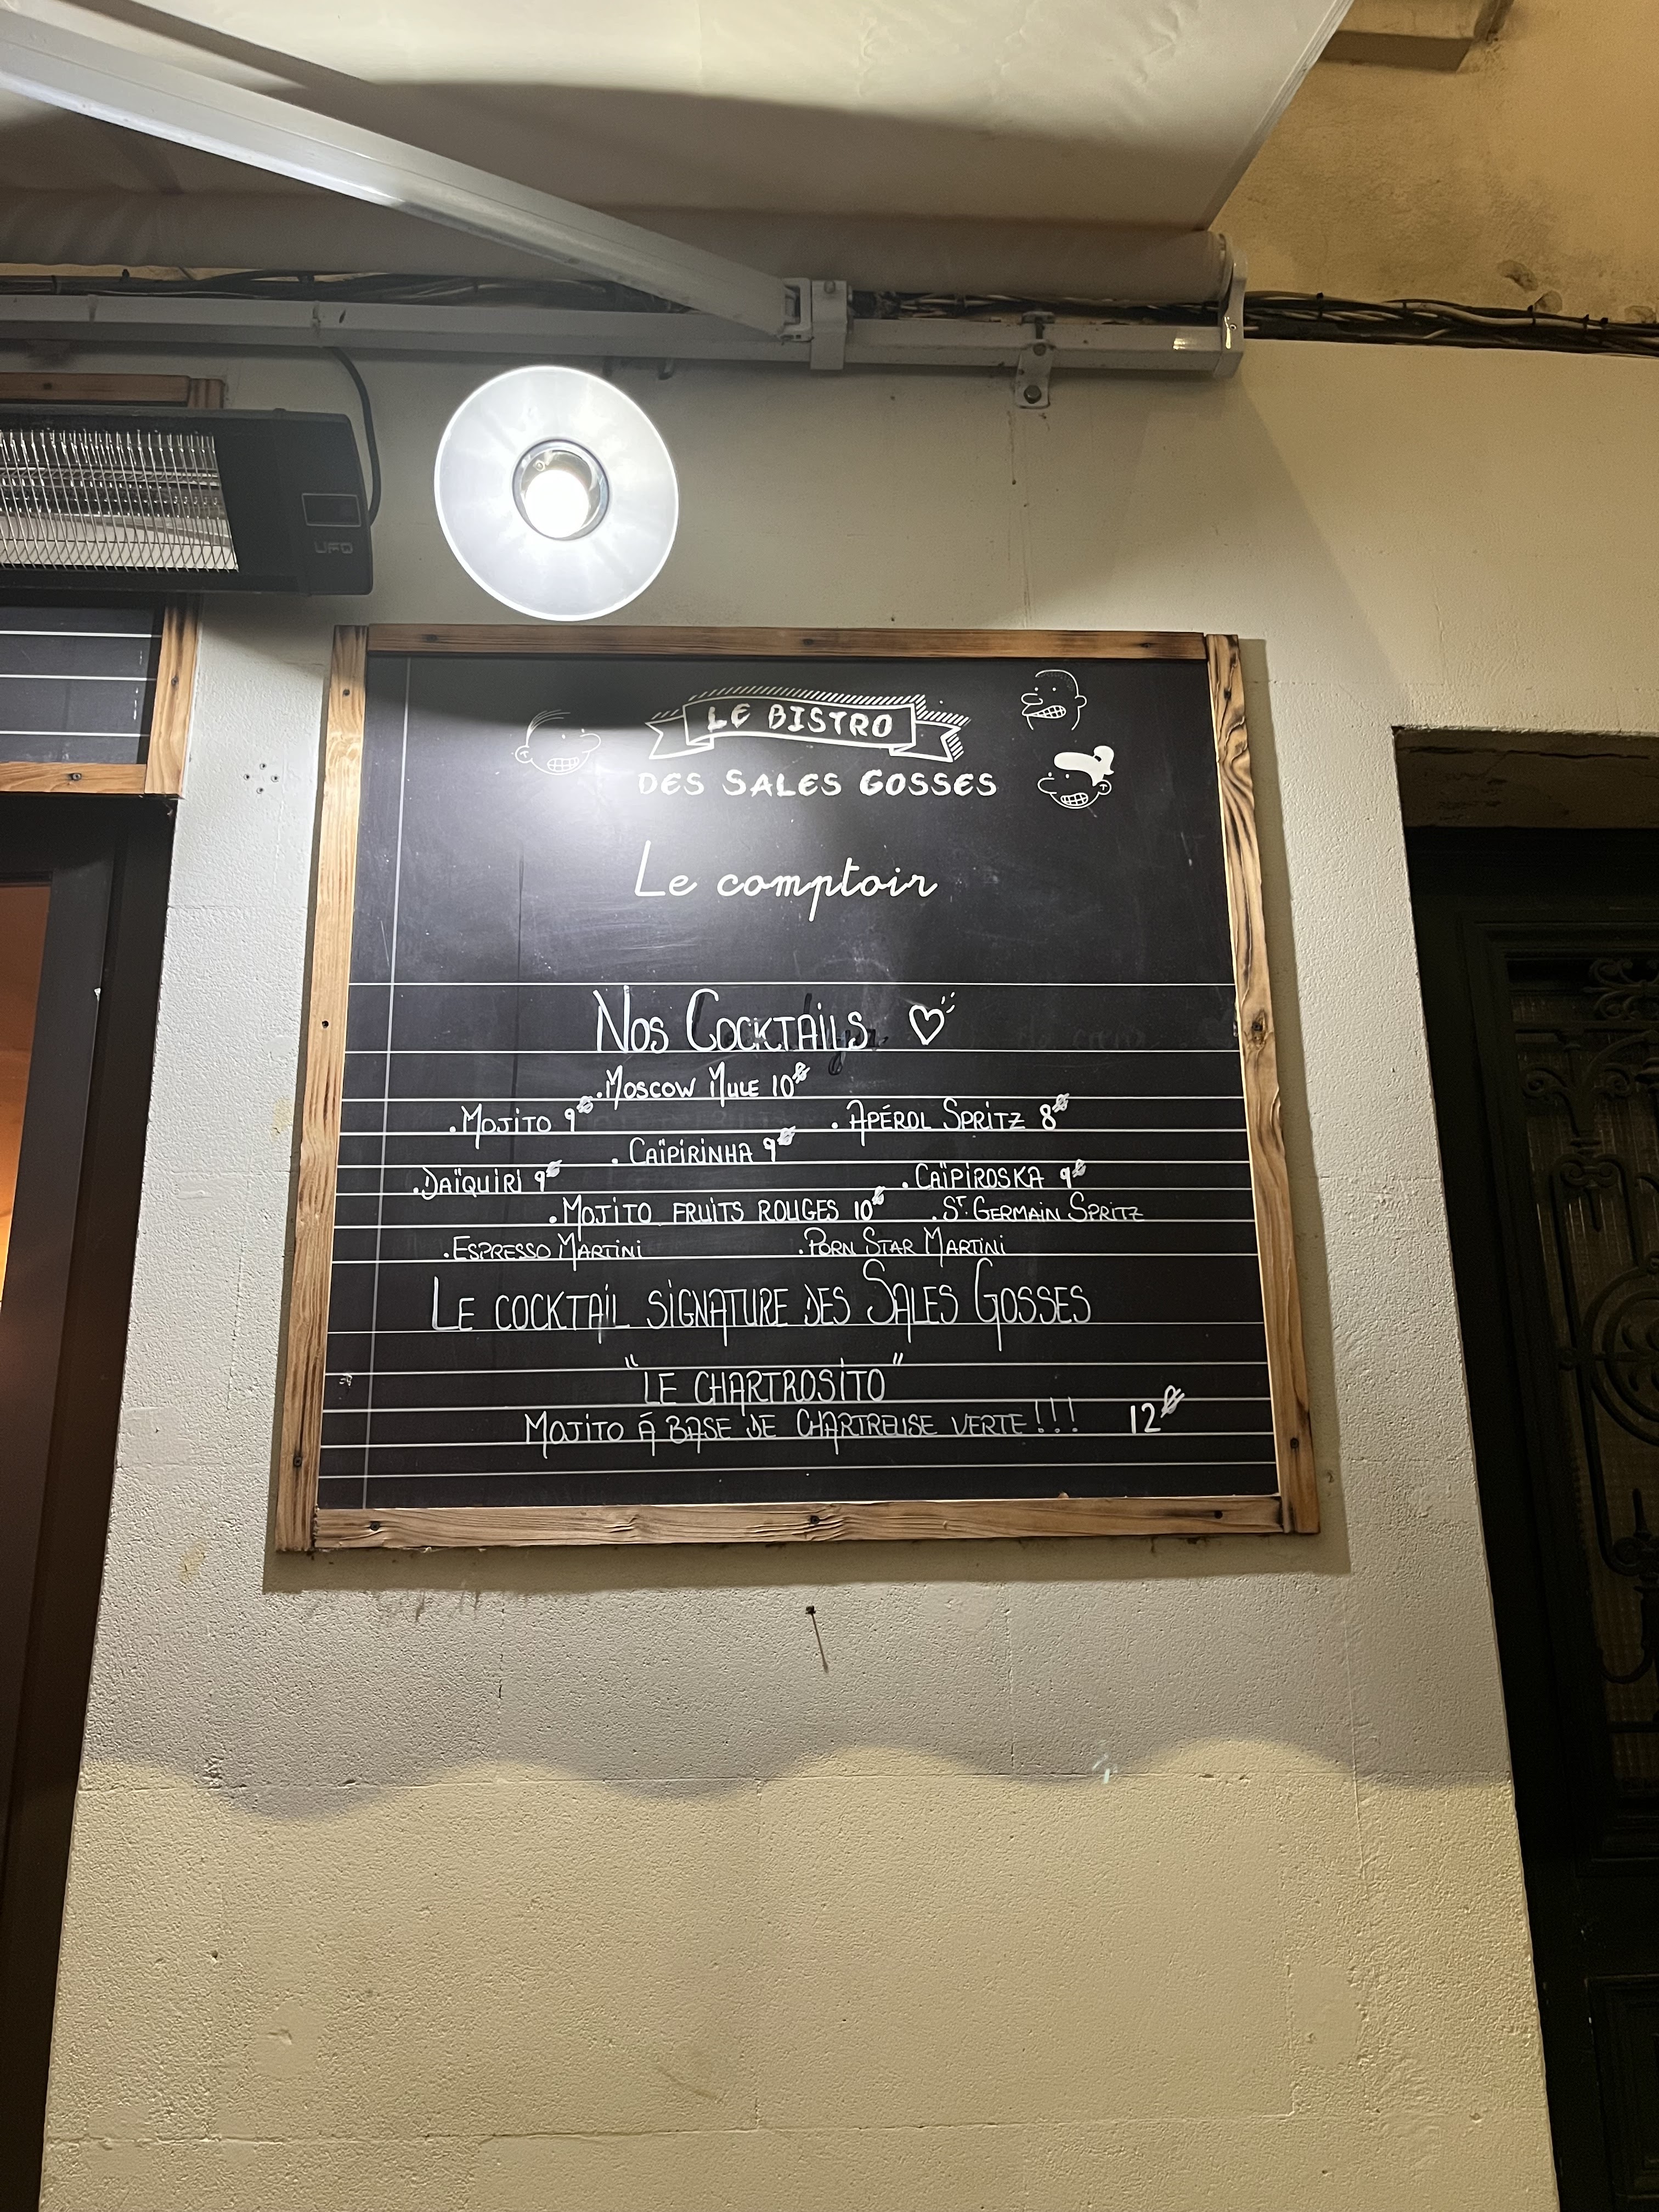 UFO
LE BISTRO
DES SALES GOSSES
Le comptoir
NOS COCKTAILS
. MOSCOW MULE 10€
. MOJITO 9€ . APÉROL SPRITZ 8€
. CAÏPIRINHA 9€
. DAÏQUIRI 9€ . CAÏPIROSKA 9€
. MOJITO FRUITS ROUGES 10€ . ST. GERMAIN SPRITZ
. ESPRESSO MARTINI . PORN STAR MARTINI
LE COCKTAIL SIGNATURE DES SALES GOSSES
"LE CHARTROSITO"
MOJITO À BASE DE CHARTREUSE VERTE!!! 12€